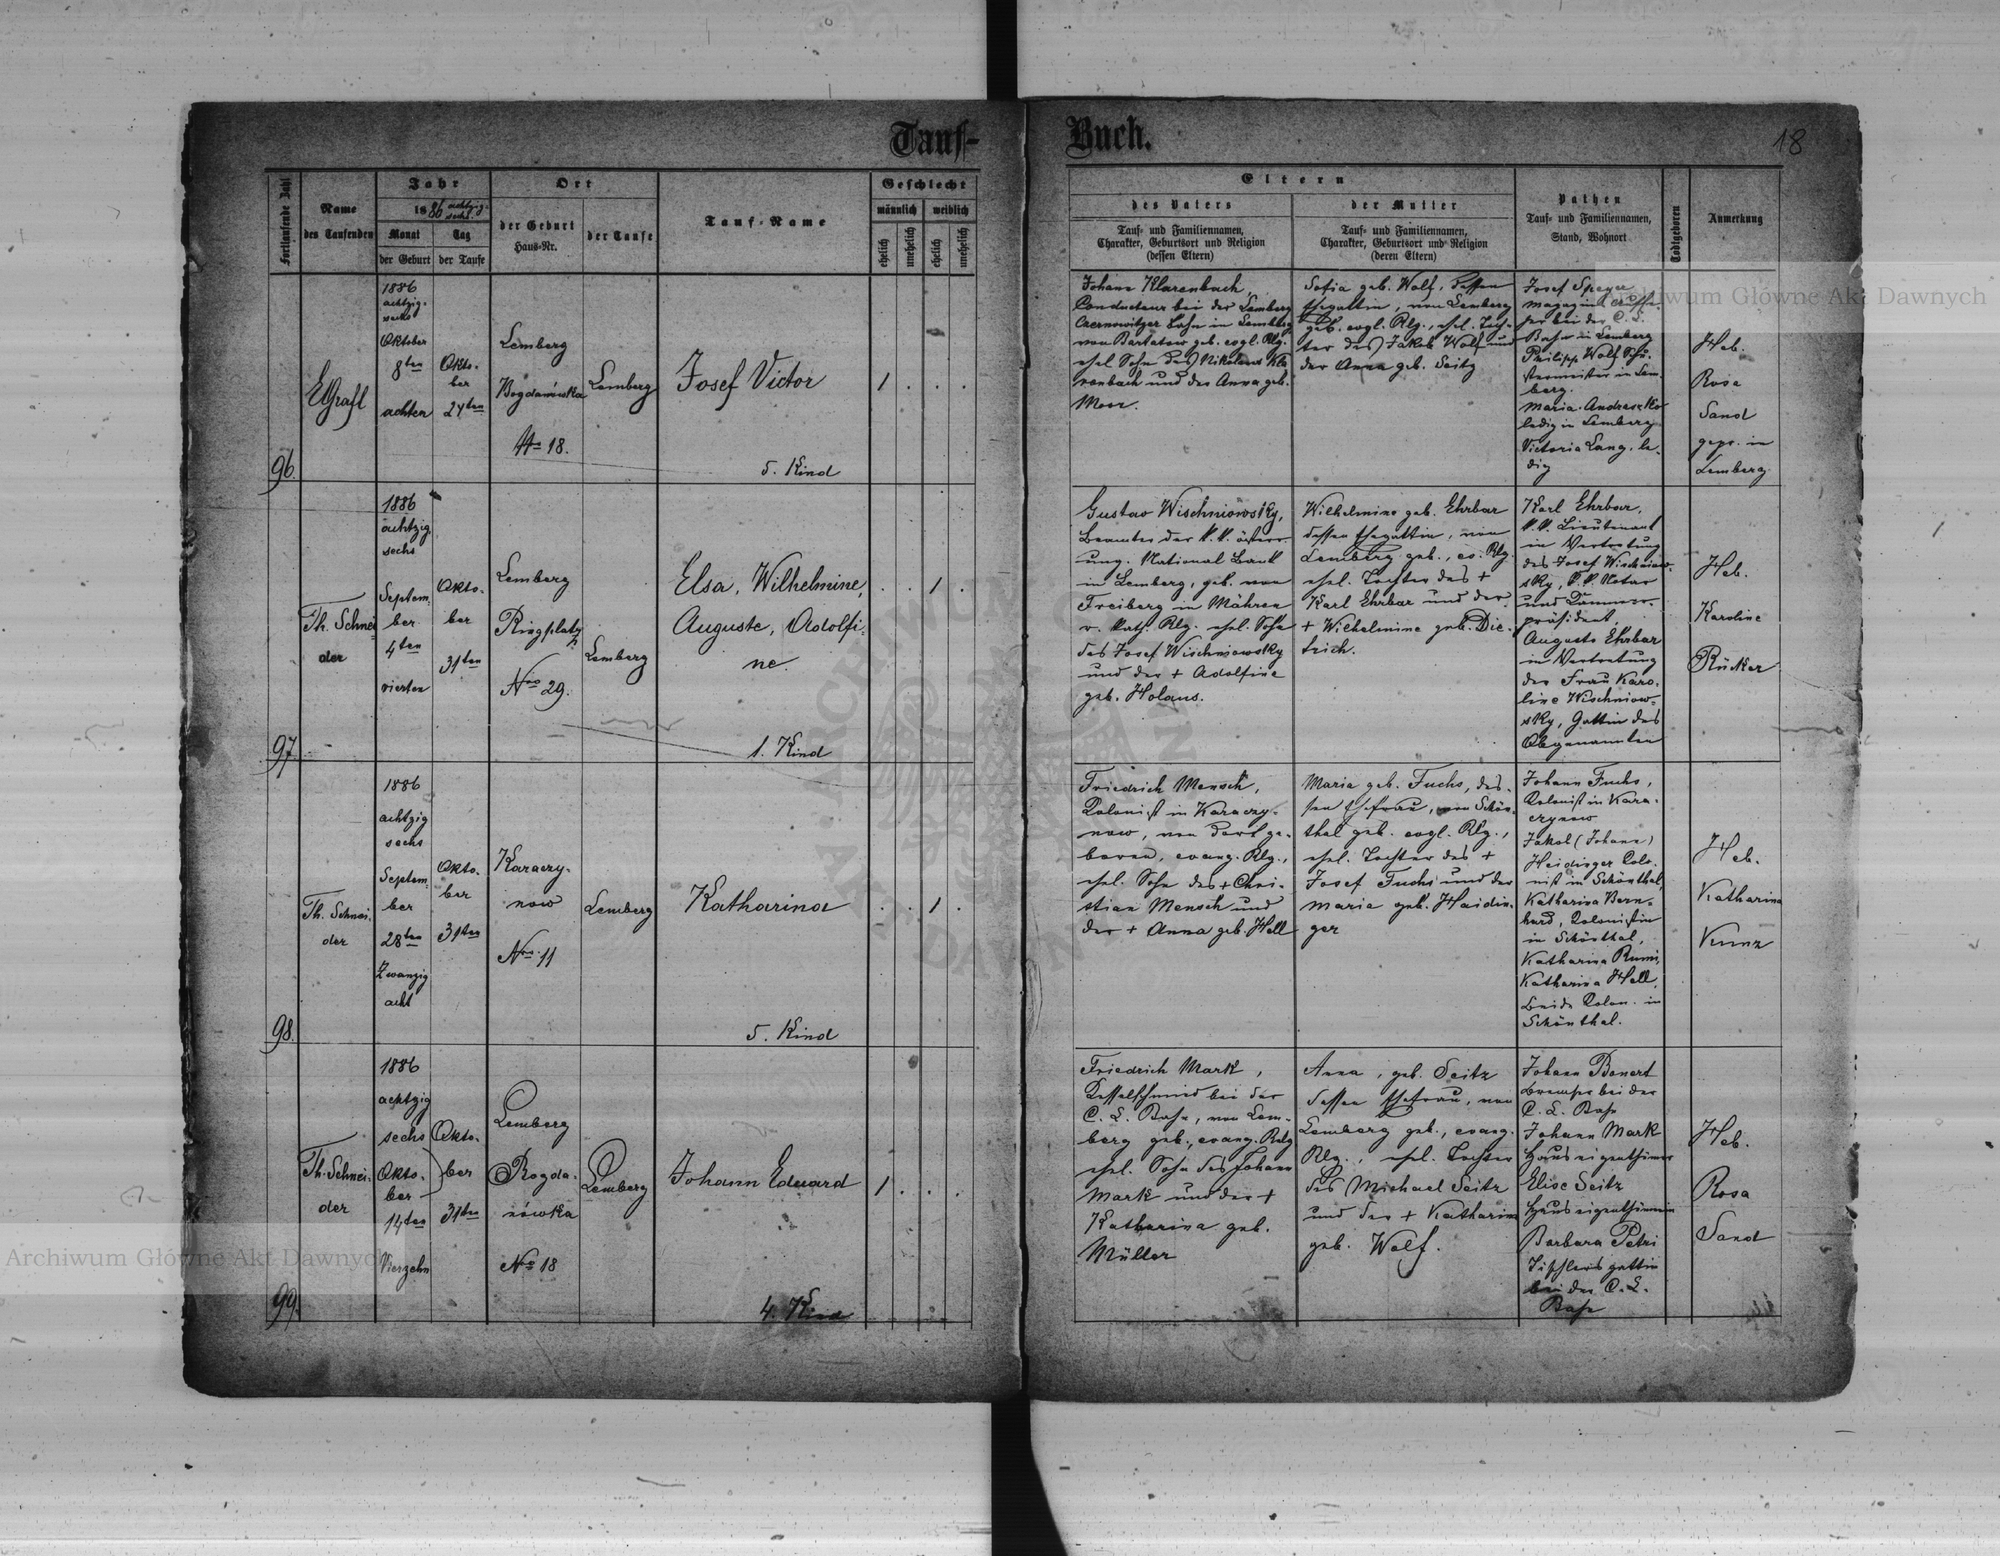 Tauf-
Buch.
18
Fortlaufende Zahl
Name
des Taufenden
Jahr
1886 achtzig-
sechs
Monat
der Geburt
Tag
der Taufe
Ort
der Geburt
Haus-Nr.
der Taufe
Tauf-Name
Geschlecht
männlich
weiblich
ehelich
unehelich
ehelich
unehelich
Eltern
des Vaters
Tauf- und Familiennamen,
Charakter, Geburtsort und Religion
(dessen Eltern)
der Mutter
Tauf- und Familiennamen,
Charakter, Geburtsort und Religion
(deren Eltern)
Pathen
Tauf- und Familiennamen,
Stand, Wohnort
Todtgeboren
Anmerkung
96.
EGrafl
1886
achtzig-
sechs
Oktober
8ten
achten
Okto-
ber
24ten
Lemberg
Bogdanówka
No 18.
Lemberg
Josef Victor
5. Kind
1 . . .
Johann Klarenbach,
Conducteur bei der Lemberg
Czernowitzer Bahn in Lemberg
von Bartatow geb. evgl. Rlg.
ehel Sohn des Nikolaus Kla
renbach und der Anna geb.
Moor.
Sofia geb. Wolf, dessen
Ehegattin, von Lemberg
geb. evgl. Rlg., ehel. Toch-
ter des Jakob Wolf und
der Anna geb. Seitz
Josef Speyer
Magazins
bei der C. L.
Bahn in Lemberg
Philipp Wolf Schu-
stermeister in Lem-
berg.
Maria
ledig in Lemberg
Victoria Lang, le-
dig
Heb.
Rosa
Sand
gepr. in
Lemberg.
97.
Th. Schnei
der
1886
achtzig
sechs
Septem-
ber
4ten
vierten
Okto-
ber
31ten
Lemberg
Ringplatz
Nro 29.
Lemberg
Elsa, Wilhelmine,
Auguste, Adolfi-
ne.
1. Kind
. . 1 .
Gustav Wischniowsky,
Beamter der k.k. österr.
ung. National Bank
in Lemberg, geb. von
Freiberg in Mähren
r. kath. Rlg. ehel. Sohn
des Josef Wischniowsky
und der + Adolfine
geb. Holaus.
Wilhelmine geb. Ehrbar
dessen Ehegattin, von
Lemberg geb., ev. Rlg.
ehel. Tochter des +
Karl Ehrbar und der
+ Wilhelmine geb. Die-
trich.
Karl Ehrbar,
k.k. Lieutenant
in Vertretung
des Josef Wischniow-
sky, k.k. Notar
und Kammer-
präsident,
Auguste Ehrbar
in Vertretung
der Frau Karo-
line Wischniow-
sky, Gattin des
Obgenannten
Heb.
Karoline
Rücker
98.
Th. Schnei-
der
1886
achtzig
sechs
Septem-
ber
28ten
Zwanzig
acht
Okto-
ber
31ten
Karaczy-
now
No 11
Lemberg
Katharina
5. Kind
. . 1 .
Friedrich Mensch,
Kolonist in Karaczy-
now, von dort ge-
boren, evang. Rlg.,
ehel. Sohn des + Chri-
stian Mensch und
der + Anna geb. Hell
Maria geb. Fuchs, des-
sen Ehefrau, von Schön-
thal geb. evgl. Rlg.,
ehel. Tochter des +
Josef Fuchs und der
Maria geb. Haidin-
ger
Johann Fuchs,
Kolonist in Kara-
czynow
Jakob (Johann)
Heidinger Kolo-
nist in Schönthal,
Katharina Bern-
hard, Kolonistin
in Schönthal,
Katharina Rumi,
Katharina Hell,
beide Kolon. in
Schönthal.
Heb.
Katharina
Kunz
99.
Th. Schnei-
der
1886
achtzig
sechs
Okto-
ber
14ten
Vierzehn
Okto-
ber
31ten
Lemberg
Bogda-
nówka
No 18
Lemberg
Johann Eduard
4. Kind
1 . . .
Friedrich Mark,
Kesselschmied bei der
C. L. Bahn, von Lem-
berg geb., evang. Rlg
ehel. Sohn des Johann
Mark und der +
Katharina geb.
Müller
Anna, geb. Seitz
dessen Ehefrau, von
Lemberg geb., evang.
Rlg., ehel. Tochter
des Michael Seitz
und der + Katharina
geb. Wolf.
Johann Benert
Bremser bei der
C. L. Bahn
Johann Mark
Hauseigenthümer
Elise Seitz
Hauseigenthümerin
Barbara Petri
Tischlersgattin
bei der C. L.
Bahn
Heb.
Rosa
Sand
Archiwum Główne Akt Dawnych
Archiwum Główne Akt Dawnych